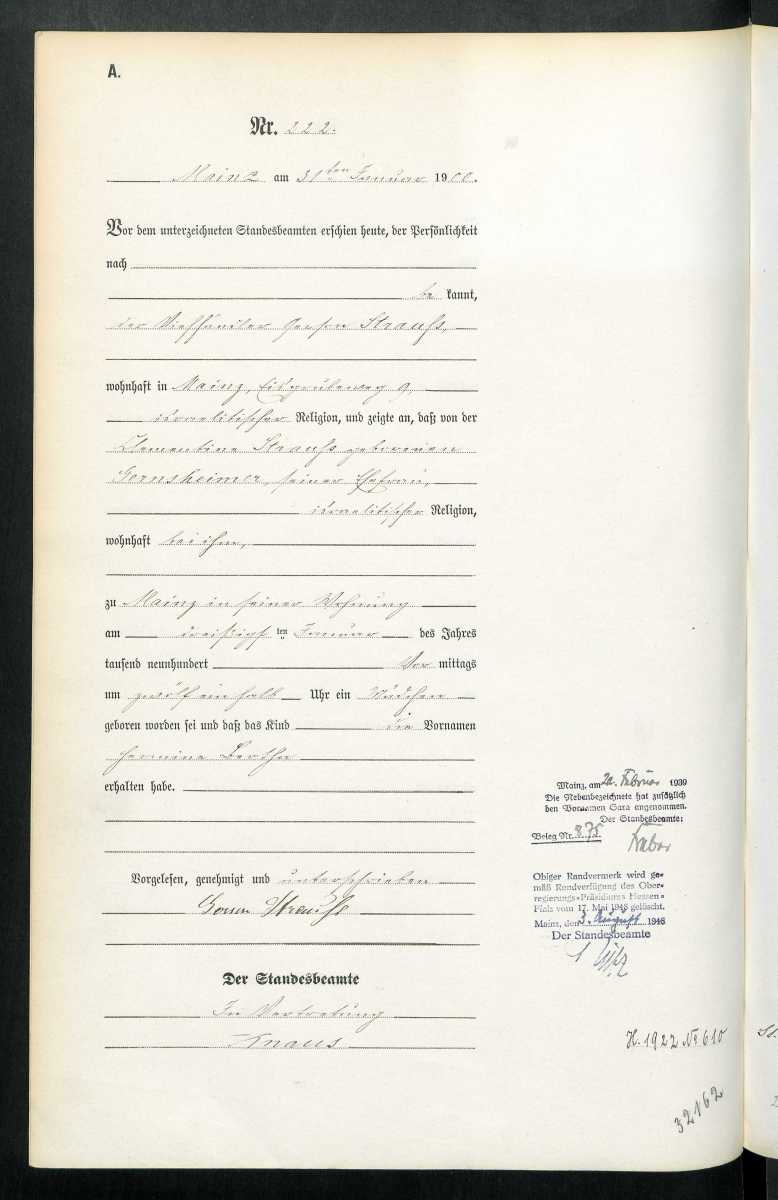 A.
Nr. 222.
Mainz am 31ten Januar 1900.
Vor dem unterzeichneten Standesbeamten erschien heute, der Persönlichkeit
nach
be kannt,
der Viehhändler Strauß,
wohnhaft in Mainz, 9,
israelitischer Religion, und zeigte an, daß von der
Clementine Strauß geborenen
Gernsheimer, seiner Ehefrau,
israelitischer Religion,
wohnhaft bei ihm,
zu Mainz in seiner Wohnung
am dreißigsten Januar des Jahres
tausend neunhundert Vor mittags
um zwölf ein halb Uhr ein Mädchen
geboren worden sei und daß das Kind die Vornamen
Hermina Bertha
erhalten habe.
Vorgelesen, genehmigt und unterschrieben
Strauß
Der Standesbeamte
In Vertretung
Knaus
Mainz, am 20. Februar 1939
Die Nebenbezeichnete hat zusätzlich
den Vornamen Sara angenommen.
Der Standesbeamte:
Beleg Nr. 875
Obiger Randvermerk wird ge-
mäß Rundverfügung des Ober-
regierungs-Präsidiums Hessen-
Pfalz vom 17. Mai 1946 gelöscht.
Mainz, den 3. August 1946
Der Standesbeamte
H. 1922 No 610
32162